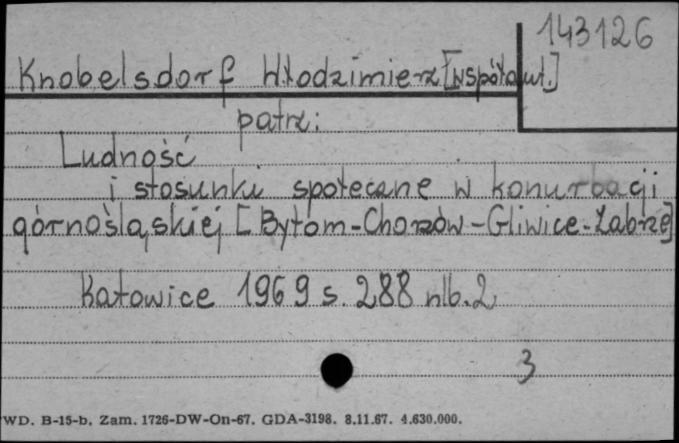 143126
Knobelsdorf Włodzimierz [współaut.]
patrz:
Ludność
i stosunki społeczne w konurbacji
górnośląskiej [Bytom-Chorzów-Gliwice-Zabrze]
Katowice 1969 s. 288 nlb. 2
3
WD. B-15-b. Zam. 1726-DW-On-67. GDA-3198. 8.11.67. 4.630.000.